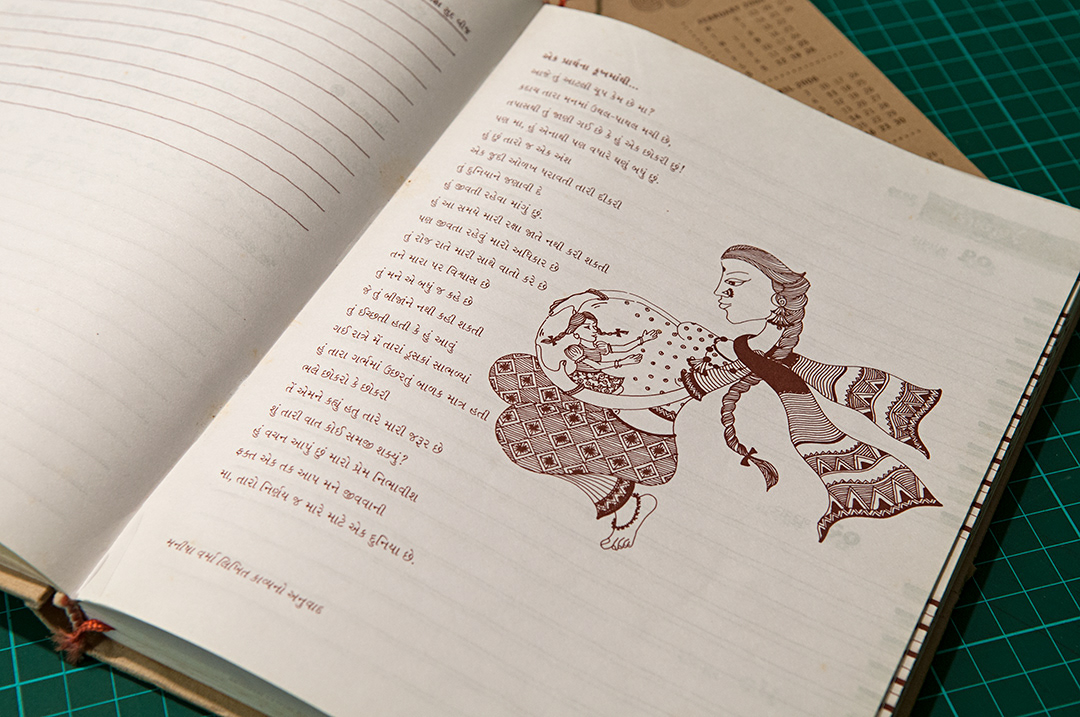 એક પ્રાર્થના કૂખમાંથી...
આજે તું આટલી ચૂપ કેમ છે મા?
કદાચ તારા મનમાં ઉથલ-પાથલ મચી છે,
તપાસથી તું જાણી ગઈ છે કે હું એક છોકરી છું!
પણ મા, હું એનાથી પણ વધારે ઘણું બધું છું.
હું છું તારો જ એક અંશ
એક જુદી ઓળખ ધરાવતી તારી દીકરી
તું દુનિયાને જણાવી દે
હું જીવતી રહેવા માંગું છું.
હું આ સમયે મારી રક્ષા જાતે નથી કરી શકતી
પણ જીવતા રહેવું મારો અધિકાર છે
તું રોજ રાતે મારી સાથે વાતો કરે છે
તને મારા પર વિશ્વાસ છે
તું મને એ બધું જ કહે છે
જે તું બીજાંને નથી કહી શકતી
તું ઈચ્છતી હતી કે હું આવું
ગઈ રાત્રે મેં તારાં ડૂસકાં સાભળ્યાં
હું તારા ગર્ભમાં ઉછરતું બાળક માત્ર હતી
ભલે છોકરો કે છોકરી
તેં એમને કહ્યું હતુ તારે મારી જરૂર છે
શું તારી વાત કોઈ સમજી શક્યું?
હું વચન આપું છું મારો પ્રેમ નિભાવીશ
ફક્ત એક તક આપ મને જીવવાની
મા, તારો નિર્ણય જ મારે માટે એક દુનિયા છે.
મનીષા વર્મા લિખિત કાવ્યનો અનુવાદ